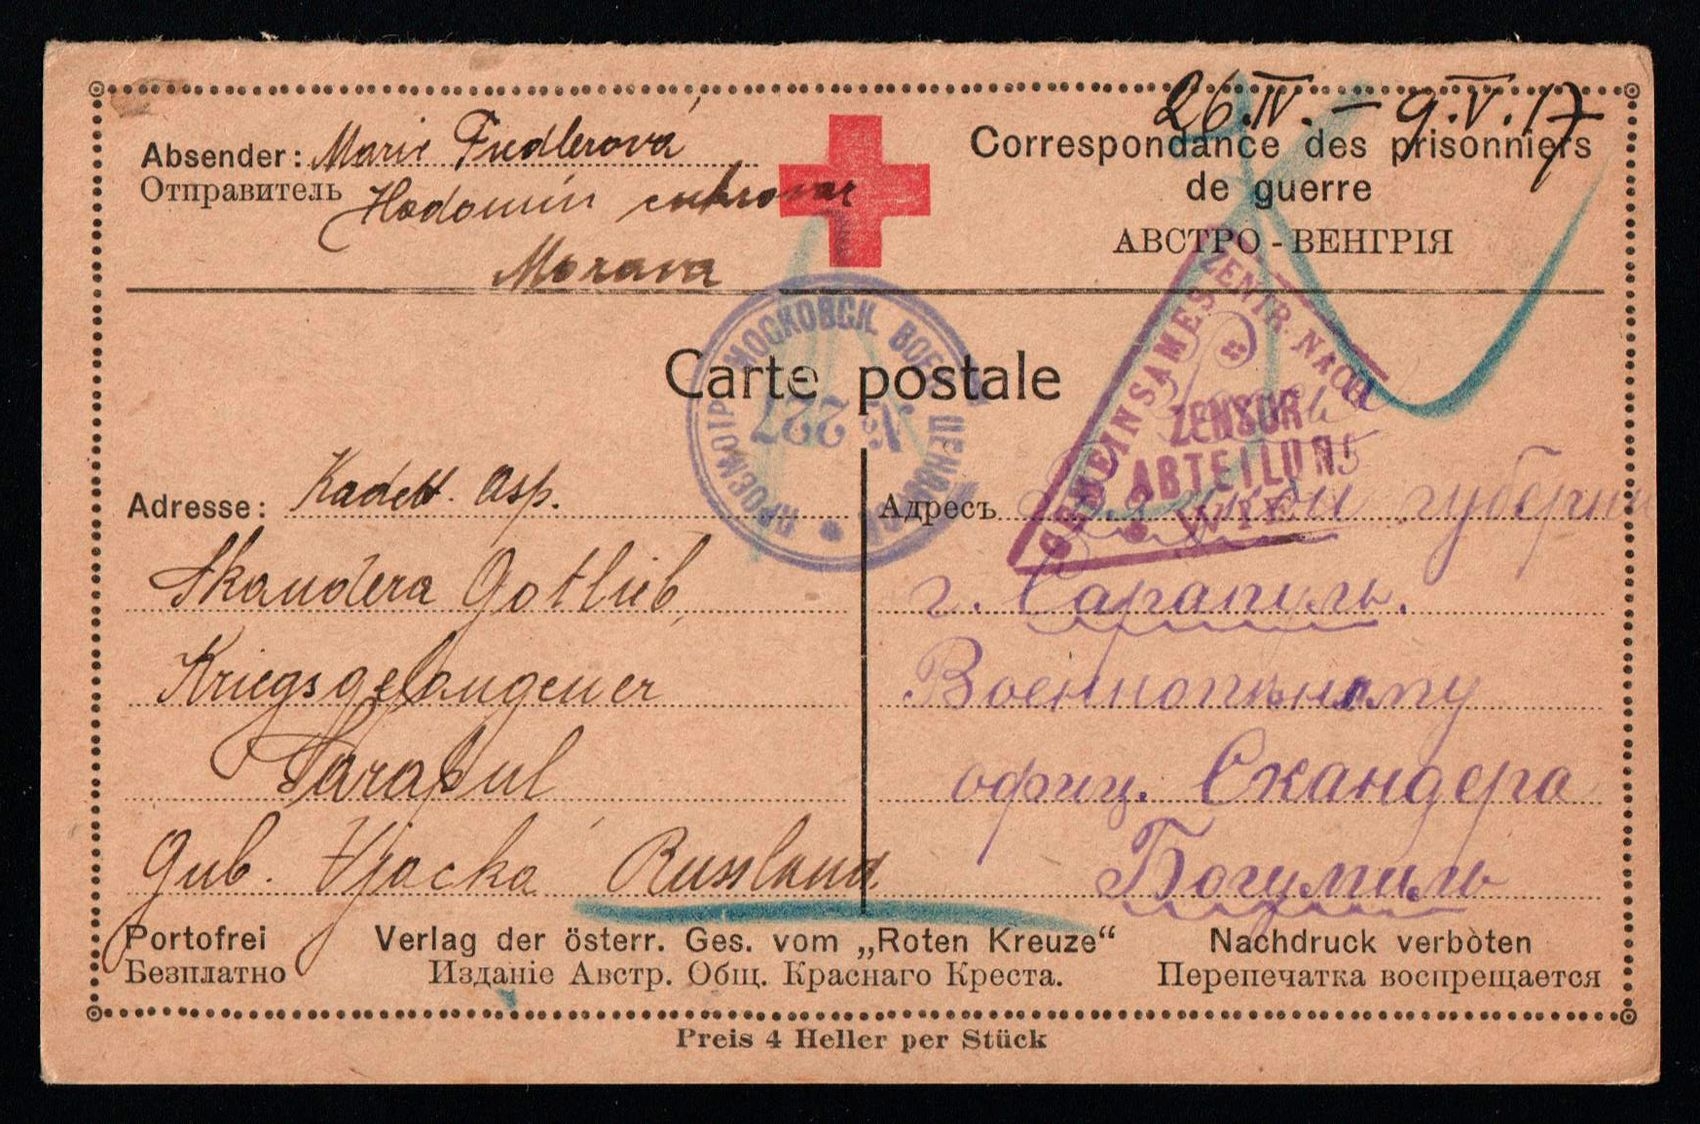 26.IV. – 9.V.17
Correspondance des prisonniers
de guerre
АВСТРО - ВЕНГРІЯ
Absender: Marie Fiedlerová
Отправитель Hodonín cukrovar
Morava
Carte postale
ПРОСМОТР. МОСКОВСК. ВОЕН. ЦЕНЗУРОЙ
№ 227
GEMEINSAMES ZENTR. NACHW.
ZENSUR
ABTEILUNG
WIEN
Adresse: Kadett. Asp.
Skandera Gotlieb,
Kriegsgefangener
Sarapul
Gub. Vjacka Russland
Адресъ Вятской губерніи
г. Сарапуль.
Военнопленному
офиц. Скандера
Богумиль
Portofrei Verlag der österr. Ges. vom „Roten Kreuze“ Nachdruck verboten
Безплатно Изданіе Австр. Общ. Краснаго Креста. Перепечатка воспрещается
Preis 4 Heller per Stück